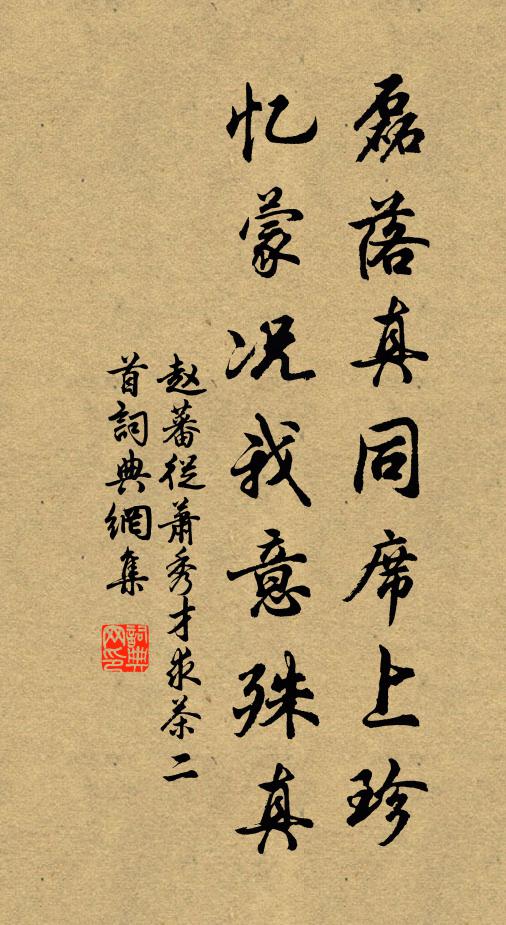 磊落真同席上珍
忆蒙况我意殊真
赵蕃從萧秀才求茶二
首詞典網集
詞典网印